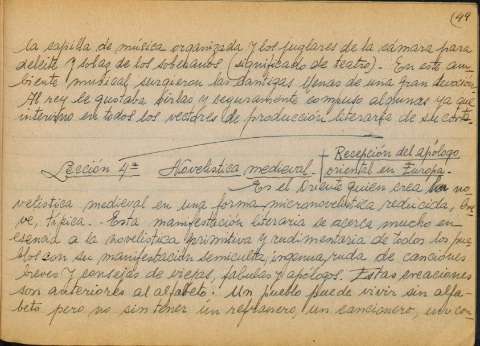 (99
la capilla de música organizada y los juglares de la cámara para
deleite y solaz de los soberanos (significado de teatro). En este am-
biente musical surgieron las cantigas llenas de una gran devoción.
Al rey le gustaba oirlas y seguramente compuso algunas ya que
intervino en todos los vectores de producción literaria de su corte.
Lección 4ª Novelística medieval. Recepción del apólogo
oriental en Europa.
Es el Oriente quien crea la no-
velística medieval en una forma micronovelística reducida, bre-
ve, típica. Esta manifestación literaria se acerca mucho en
esencia a la novelística primitiva y rudimentaria de todos los pue
blos con su manifestación semiculta, ingenua, ruda de canciones
breves y consejas de viejas, fabulas y apólogos. Estas creaciones
son anteriores al alfabeto. Un pueblo puede vivir sin alfa-
beto pero no sin tener un refranero, un cancionero, un co-